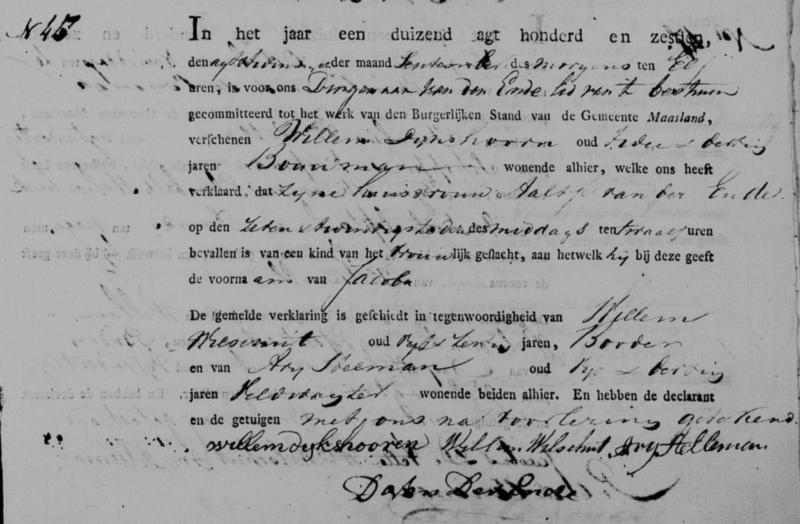 N 45 In het jaar een duizend agt honderd en zestien,
den agt & twintig der maand September des morgens ten Elf
uren, is voor ons van den Ende lid van t bestuur
gecommitteerd tot het werk van den Burgerlijken Stand van de Gemeente Maasland,
verschenen Willem Dijkshoorn oud & dertig
jaren Bouwman wonende alhier, welke ons heeft
verklaard, dat zyne huisvrouw Aaltje van der Ende
op den zeven & twintigste dezer des middags ten twaalf uren
bevallen is van een kind van het vrouwlijk geslacht, aan hetwelk hij bij deze geeft
de voornaam van Jacoba
De gemelde verklaring is geschied in tegenwoordigheid van Willem
Welschut oud jaren,
en van Ary oud & dertig
jaren Veldwagter wonende beiden alhier. En hebben de declarant
en de getuigen met ons na voorlezing getekend
willem dijkshooren Willem Welschut Ary Helleman